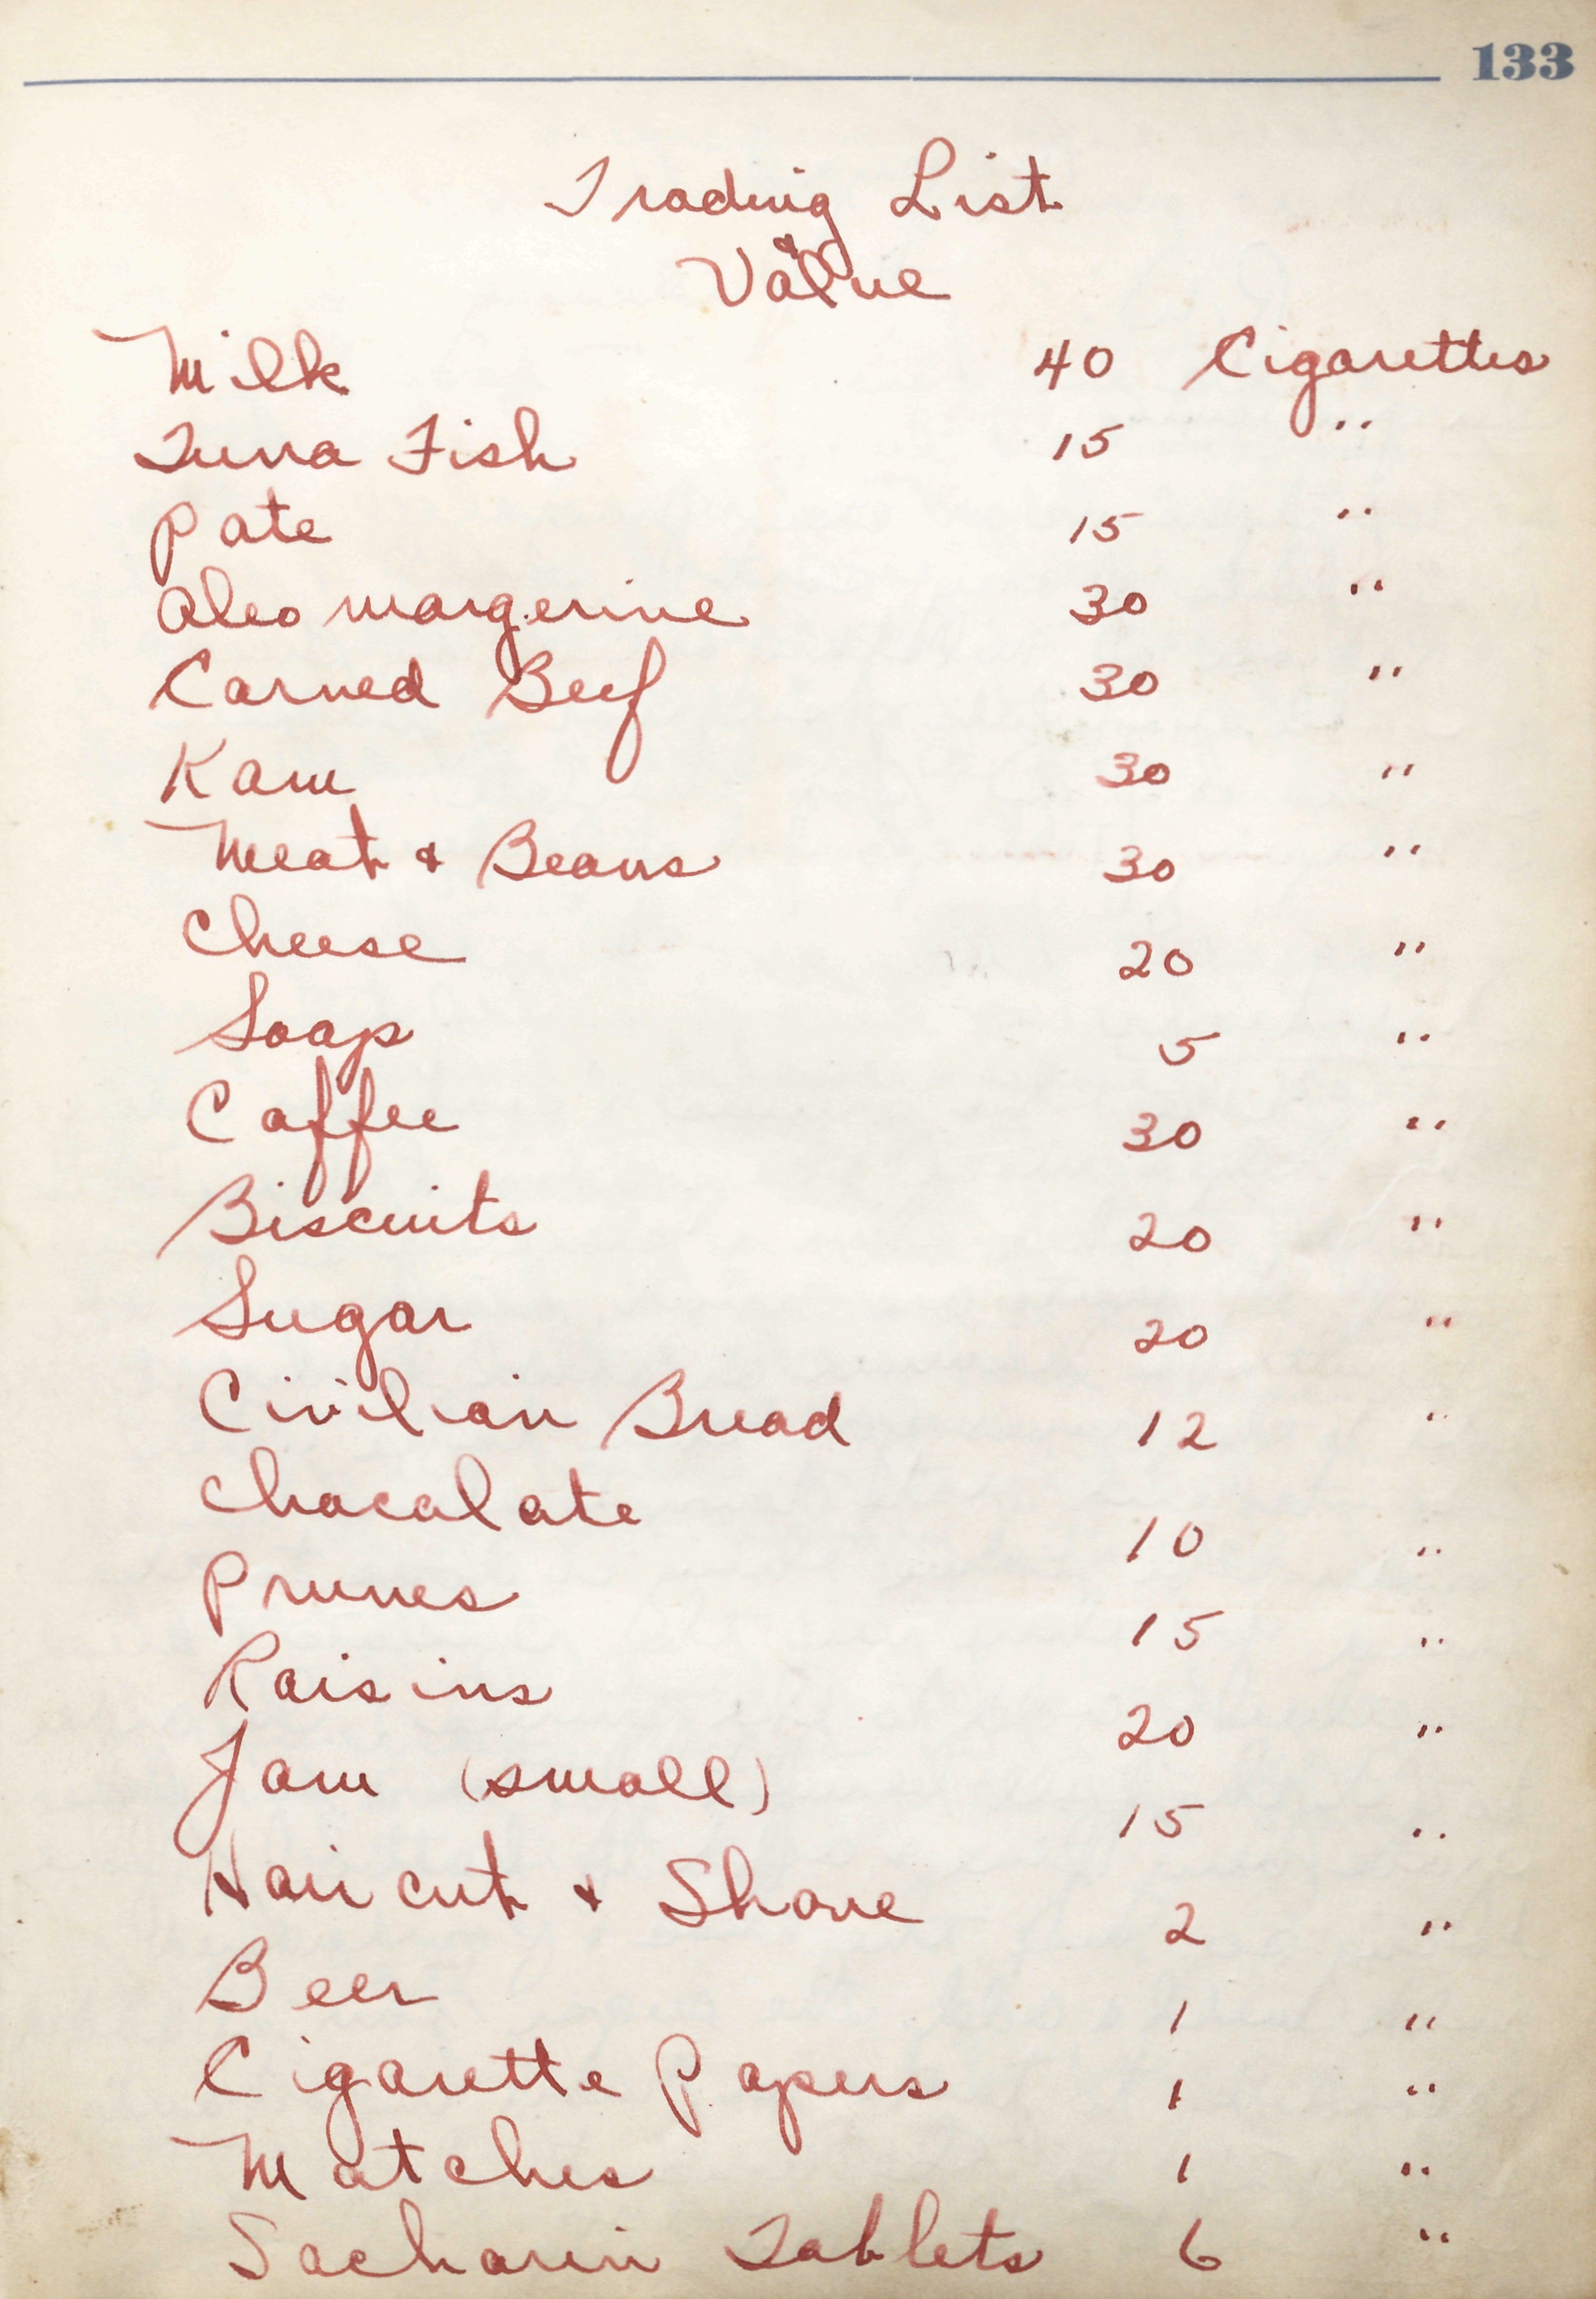 133
Trading List
&
Value
Milk 40 Cigarettes
Tuna Fish 15 "
Pate 15 "
Oleo margerine 30 "
Corned Beef 30 "
Kam 30 "
Meat & Beans 30 "
Cheese 20 "
Soap 5 "
Coffee 30 "
Biscuits 20 "
Sugar 20 "
Civilian Bread 12 "
Chocolate 10 "
Prunes 15 "
Raisins 20 "
Jam (small) 15 "
Hair cut & Shave 2 "
Beer 1 "
Cigarette Papers 1 "
Matches 1 "
Sacharin Tablets 6 "